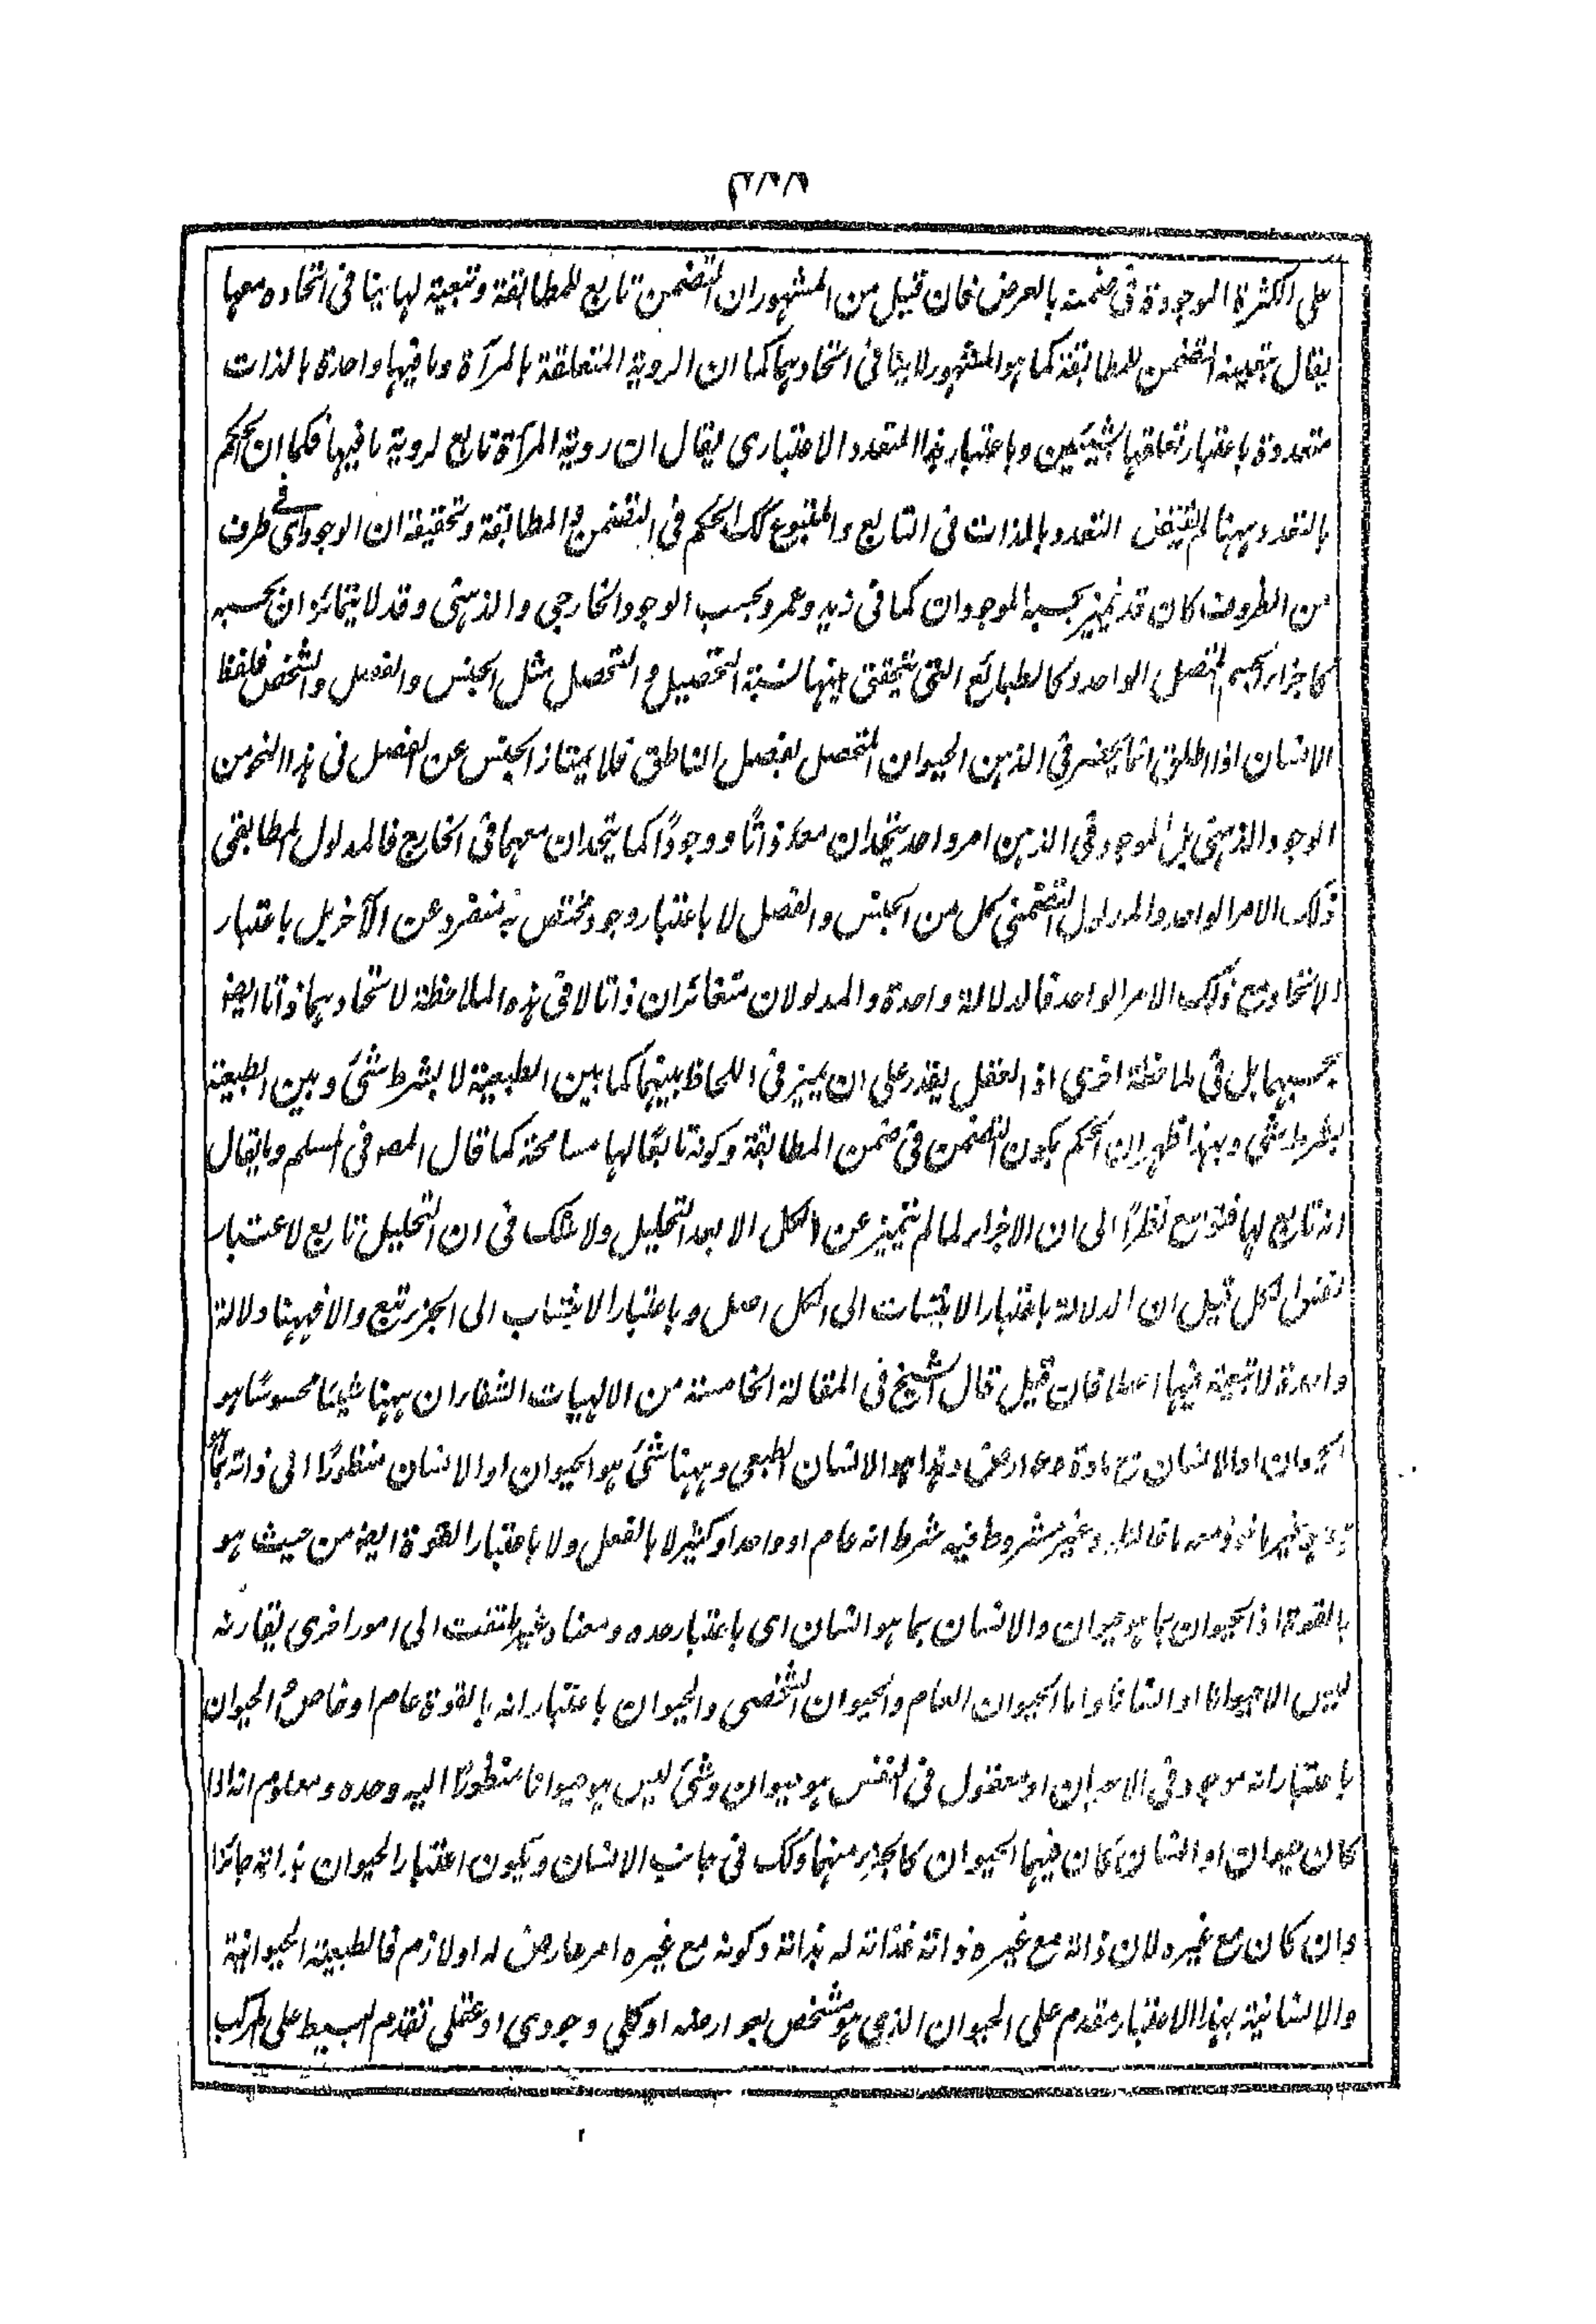 على الكثرة الموجودة في ضمنه بالعرض فان قيل من المشهور ان التضمن تابع للمطابقة وتبعية لها ينافى اتحاده معها
يقال تبعية التضمن للمطابقة كما هو المشهور لا ينافى اتحادهما كما ان الروية المتعلقة بالمرآة وما فيها واحدة بالذات
متعددة باعتبار تعلقها بشيئين وباعتبار هذا التعدد الاعتبارى يقال ان روية المرآة تابع لروية ما فيها فكما ان الحكم
بالتعدد ههنا لم يقتض التعدد بالذات فى التابع والمتبوع كك الحكم فى التضمن والمطابقة وتحقيقه ان الوجود فى اى ظرف
من الظروف كان قد يتميز بحسبه الموجودان كما فى زيد وعمرو بحسب الوجود الخارجى والذهنى وقد لا يتمائزان بحسبه
كاجزاء الجسم المتصل الواحد وكالطبائع التى يتحقق بينها نسبة التحصيل والتحصل مثل الجنس والفصل والشخص فلفظ
الانسان اذا اطلق انما يحضر فى الذهن الحيوان المتحصل بفصل الناطق فلا يمتاز الجنس عن الفصل فى هذا النحو من
الوجود الذهنى بل الموجود فى الذهن امر واحد يتحدان معه ذاتًا ووجودًا كما يتحدان معهما فى الخارج فالمدلول المطابقى
ذلك الامر الواحد والمدلول التضمنى كل من الجنس والفصل لا باعتبار وجود مختص به منفرد عن الآخر بل باعتبار
الاتحاد مع ذلك الامر الواحد فالدلالة واحدة والمدلولان متغائران ذاتا لا فى هذه الملاحظة لاتحادهما ذاتا ايضا
بحسبها بل فى ملاحظة اخرى اذ العقل يقدر على ان يميز فى اللحاظ بينهما كما بين الطبيعة لا بشرط شئ وبين الطبيعة
بشرط شئ وبهذا ظهر ان الحكم بكون التضمن فى ضمن المطابقة وكونه تابعًا لها مسامحة كما قال المصـ فى السلم وما يقال
انه تابع لها فتوسع نظرًا الى ان الاجزاء لما لم يتميز عن الكل الا بعد التحليل ولا شك فى ان التحليل تابع لاعتبار
قيل ان الدلالة باعتبار الانتساب الى الكل اصل وباعتبار الانتساب الى الجزء تبع والا فههنا دلالة
واحدة لا تبعية فيها اصلا فان قيل قال الشيخ فى المقالة الخامسة من الالهيات الشفاء ان ههنا شيئا محسوسًا هو
الحيوان او الانسان مع مادة وعوارض وهذا هو الانسان الطبعى وههنا شئ هو الحيوان او الانسان منظورًا الى ذاته بما
هو هو غير ماخوذ معه ما خالطه وغير مشروط فيه شرط انه عام او واحد او كثير لا بالفعل ولا باعتبار القوة ايضا من حيث هو
بالقوة اذ الحيوان بما هو حيوان والانسان بما هو انسان اى باعتبار حده ومعناه غير ملتفت الى امور اخرى يقارنه
ليس الا حيوانا او انسانا واما الحيوان العام والحيوان الشخصى والحيوان باعتبار انه بالقوة عام او خاص والحيوان
باعتبار انه موجود فى الاعيان او معقول فى النفس هو حيوان وشئ ليس هو حيوانا منظورًا اليه وحده ومعلوم انه اذا
كان حيوان او انسان كان فيهما الحيوان كالجزء منهما وكك فى جانب الانسان ويكون اعتبار الحيوان بذاته جائزا
وان كان مع غيره لان ذاته مع غيره ذاته فذاته له بذاته وكونه مع غيره امر عارض له او لازم فالطبيعة الحيوانية
والانسانية بهذا الاعتبار مقدم على الحيوان الذى هو مشخص بعوارضه او كلى وجودى او عقلى تقدم البسيط على المركب